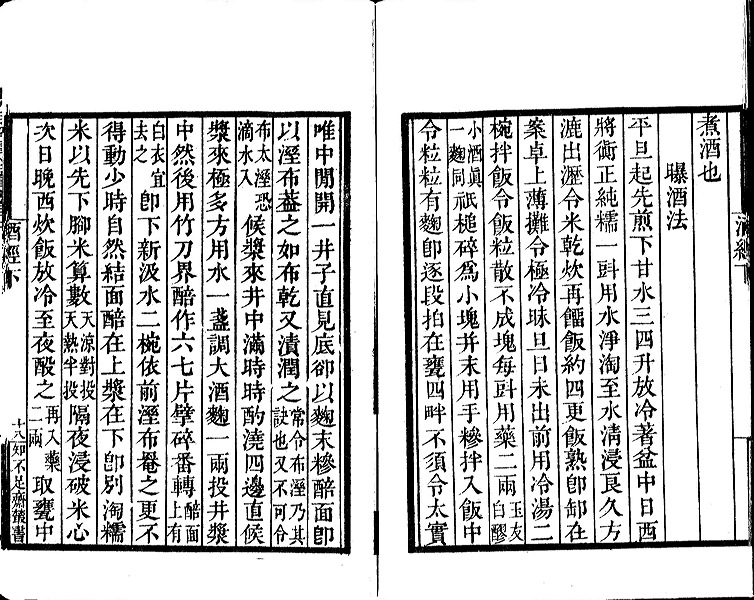 煮酒也
曝酒法
平旦起先煎下甘水三四升放冷著盆中日西
將衠正純糯一㪷用水淨淘至水淸浸良久方
漉出瀝令米乾炊再餾飯約四更飯熟卽卸在
案卓上薄攤令極冷昧旦日未出前用冷湯二
椀拌飯令飯粒散不成塊每㪷用藥二兩玉友白醪
小酒眞一麴同秖槌碎爲小塊并末用手糝拌入飯中
令粒粒有麴卽逐段拍在甕四畔不須令太實
唯中閒開一井子直見底卻以麴末糝醅面卽
以溼布葢之如布乾又漬潤之常令布溼乃其訣也又不可令
布太溼恐滴水入候漿來井中滿時時酌澆四邊直候
漿來極多方用水一盞調大酒麴一兩投井漿
中然後用竹刀界醅作六七片擘碎番轉醅面上有
白衣宜去之卽下新汲水二椀依前溼布罨之更不
得動少時自然結面醅在上漿在下卽別淘糯
米以先下腳米算數天涼對投天熱半投隔夜浸破米心
次日晚西炊飯放冷至夜酘之再入藥二兩取甕中
酒經下
知不足齋叢書